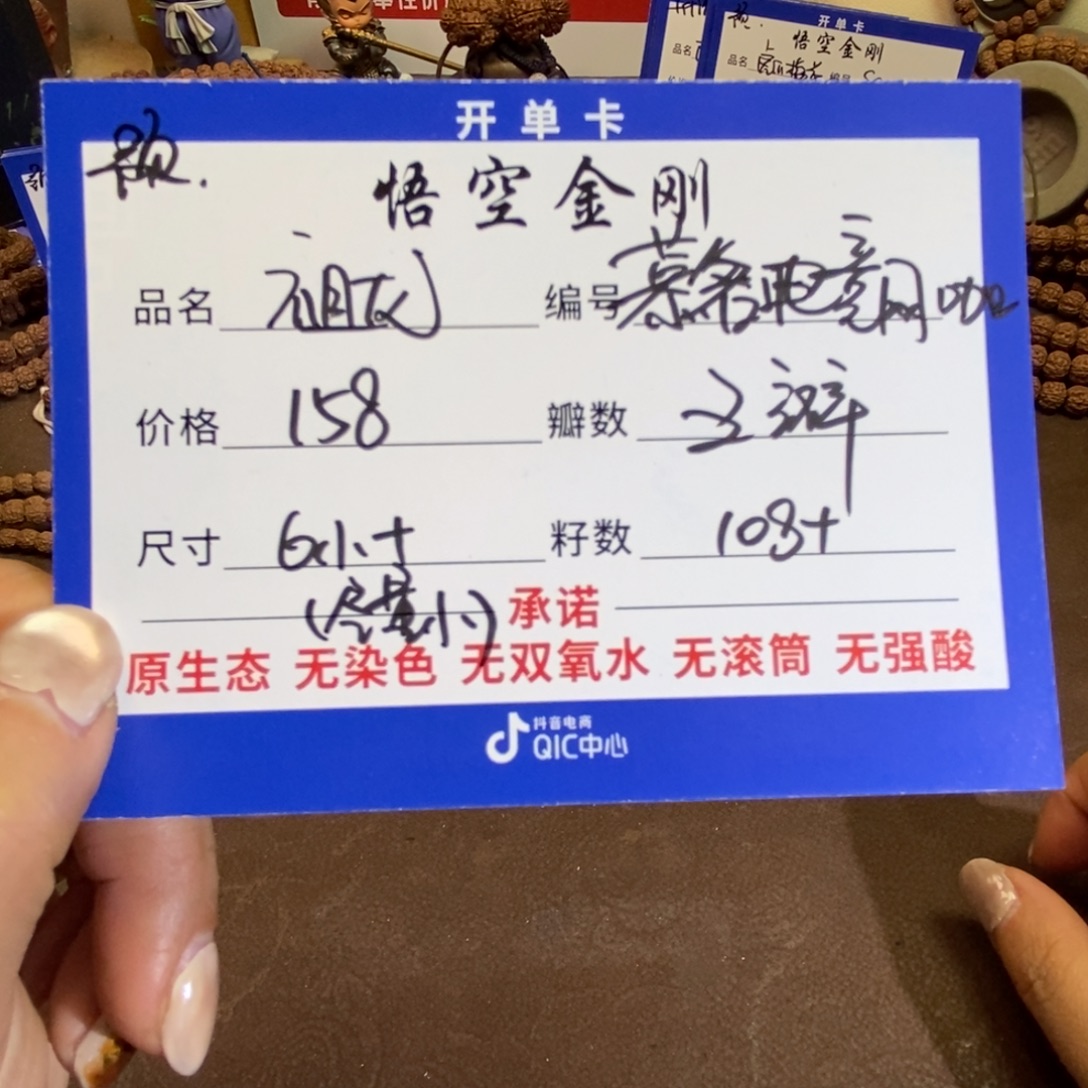 开单卡
悟空金刚
品名 祖龙 编号 慕名电竞网咖
价格 158 瓣数 五瓣
尺寸 6小+ 籽数 108+
(尽量小) 承诺
原生态 无染色 无双氧水 无滚筒 无强酸
抖音电商
QIC中心
开单卡
悟空金刚
品名 编号